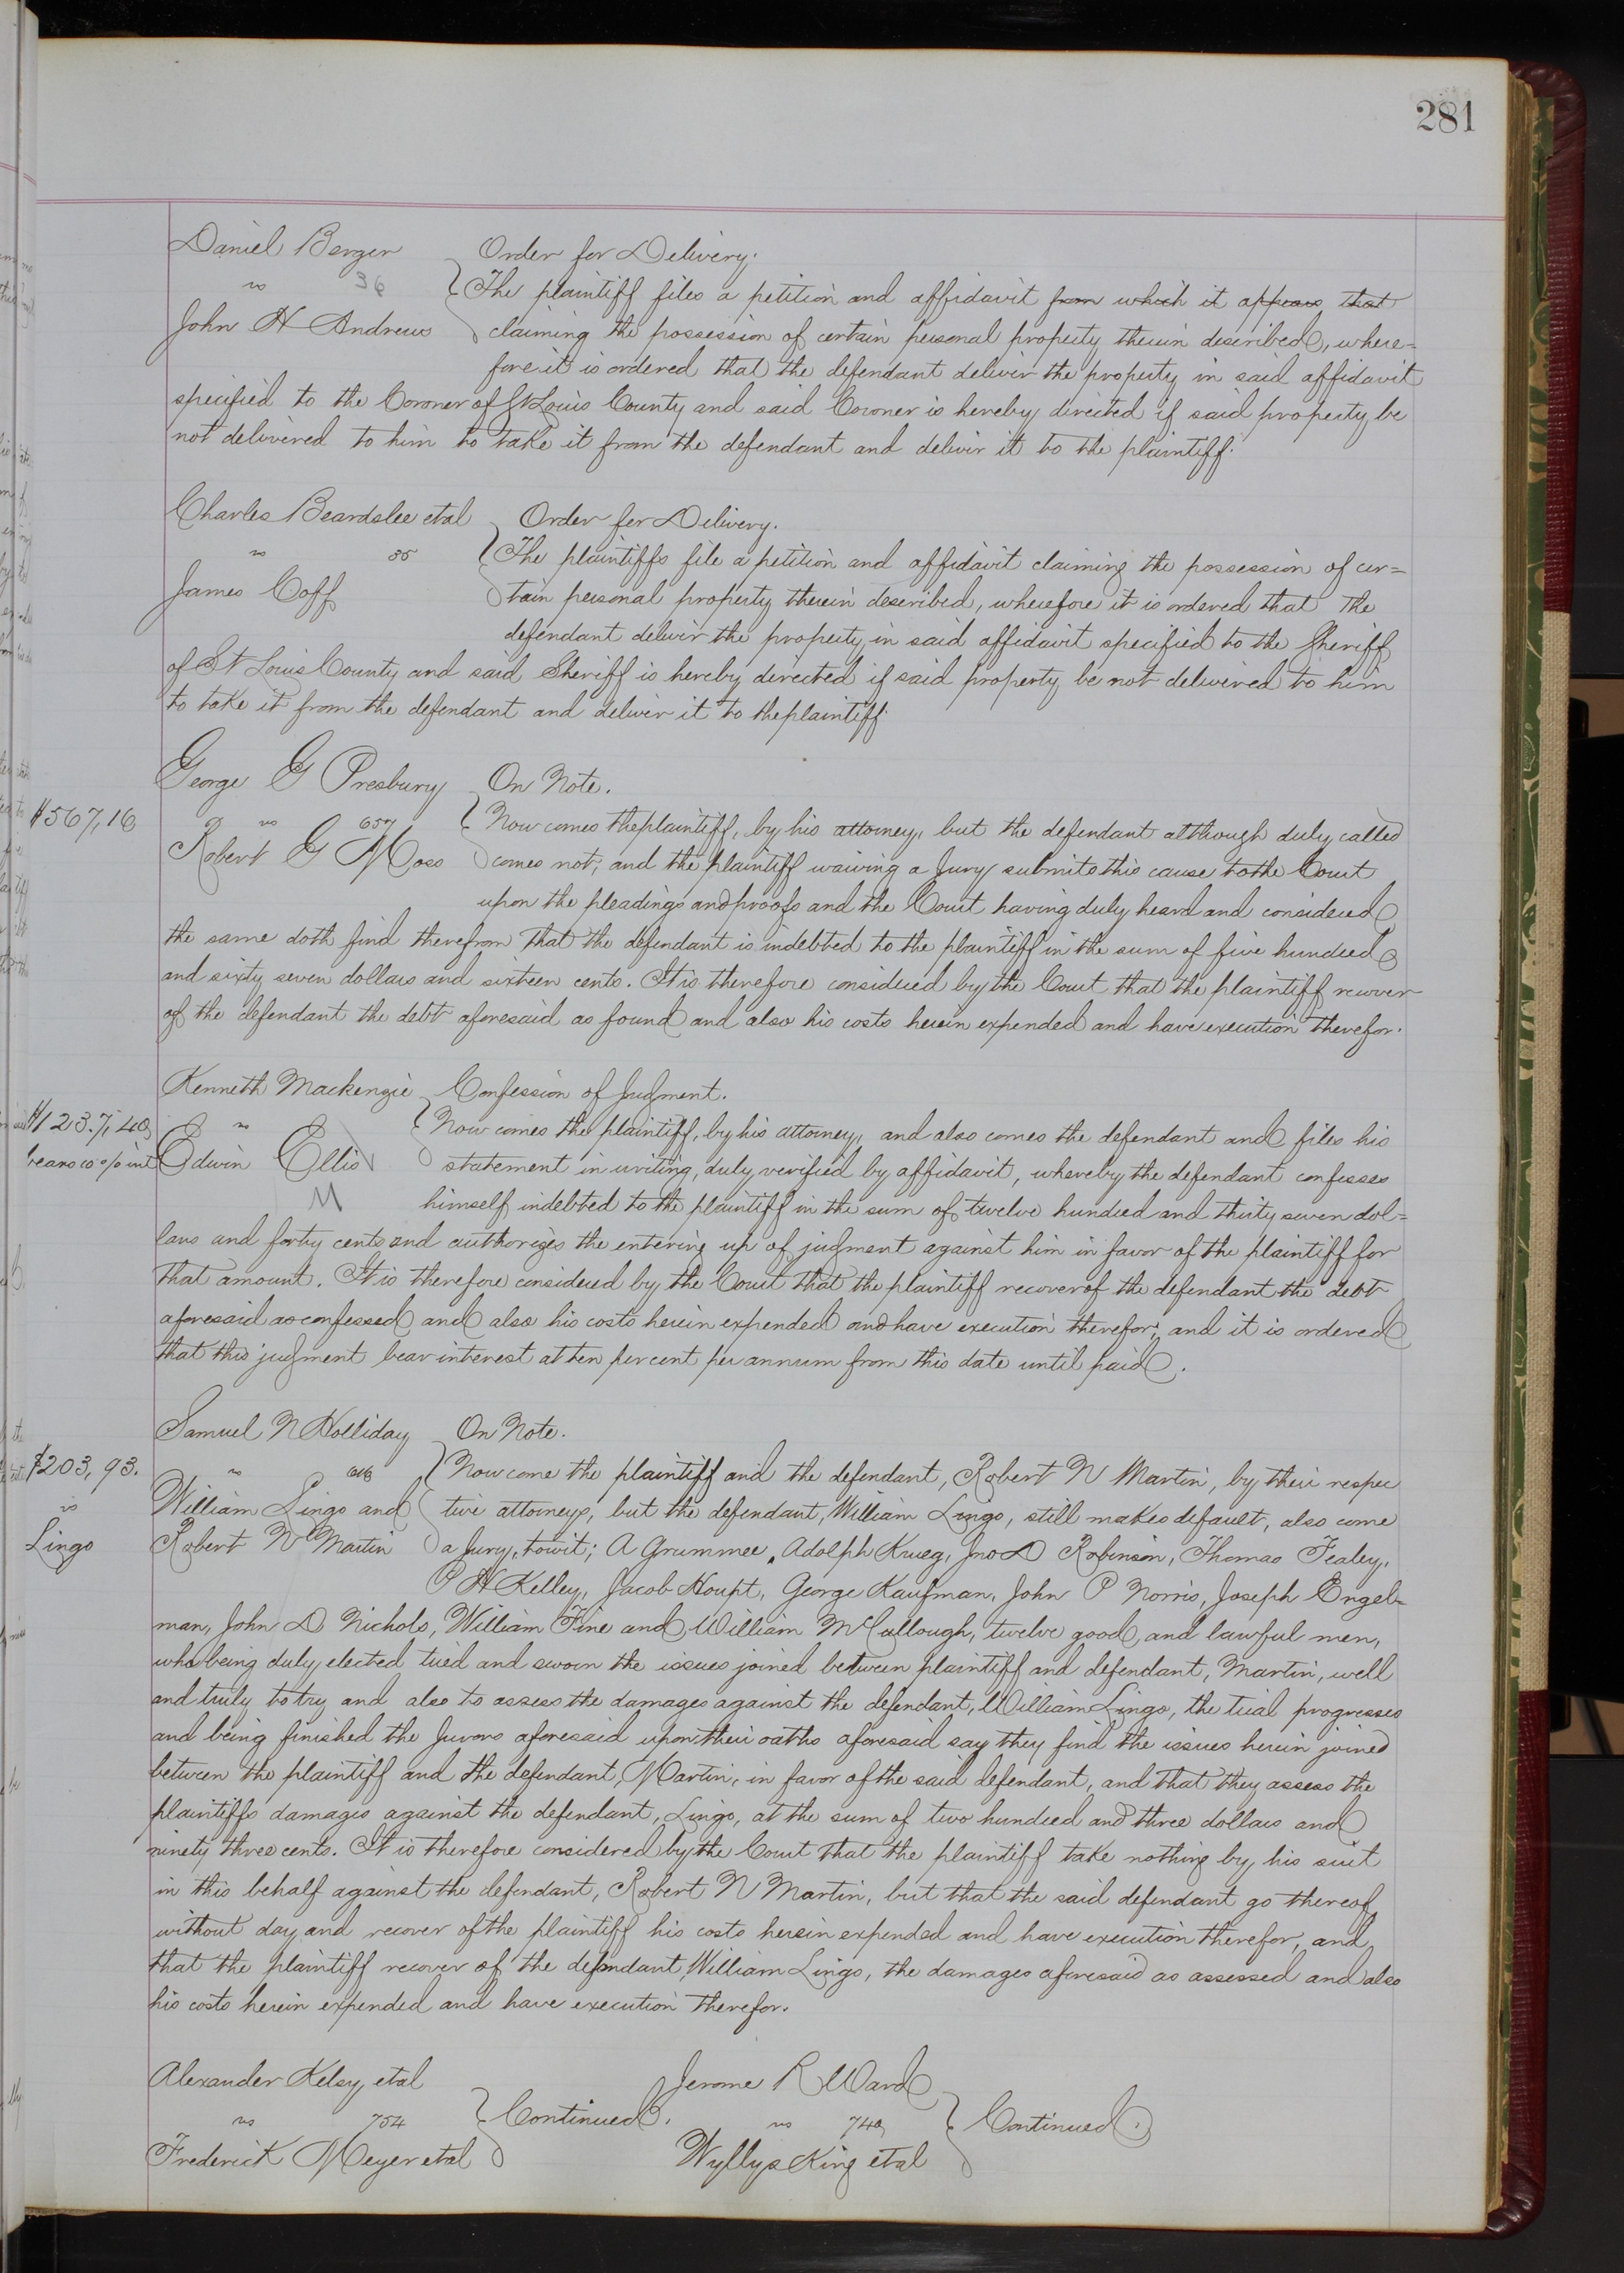 281
Daniel Berger
Order for Delivery.
vs 36
The plaintiff files a petition and affidavit from which it appears that
John H Andrews
claiming the possession of certain personal property therein described, where=
fore it is ordered that the defendant deliver the property in said affidavit
specified to the Coroner of St Louis County and said Coroner is hereby directed if said property be
not delivered to him to take it from the defendant and deliver it to the plaintiff.
Charles Beardslee etal
Order for Delivery.
vs 35
The plaintiffs file a petition and affidavit claiming the possession of cer=
James Coff
tain personal property therein described, wherefore it is ordered that the
defendant deliver the property in said affidavit specified to the Sheriff
of St Louis County and said Sheriff is hereby directed if said property be not delivered to him
to take it from the defendant and deliver it to the plaintiff.
George G Presbury
On Note.
$567,16
vs 657
Now comes the plaintiff, by his attorney, but the defendant although duly called
Robert G Moss
comes not, and the plaintiff waiving a Jury submits this cause to the Court
upon the pleadings and proofs and the Court having duly heard and considered
the same doth find therefrom that the defendant is indebted to the plaintiff in the sum of five hundred
and sixty seven dollars and sixteen cents. It is therefore considered by the Court that the plaintiff recover
of the defendant the debt aforesaid as found and also his costs herein expended and have execution therefor.
Kenneth Mackenzie
Confession of Judgment.
$1237,40
vs
Now comes the plaintiff, by his attorney, and also comes the defendant and files his
bears 10 o/o int
Edwin Ellis
statement in writing, duly verified by affidavit, whereby the defendant confesses
M
himself indebted to the plaintiff in the sum of twelve hundred and thirty seven dol=
lars and forty cents and authorizes the entering up of judgment against him in favor of the plaintiff for
that amount. It is therefore considered by the Court that the plaintiff recover of the defendant the debt
aforesaid as confessed and also his costs herein expended and have execution therefor, and it is ordered
that this judgment bear interest at ten per cent per annum from this date until paid.
Samuel N Holliday
On Note.
$203,93.
vs
Now come the plaintiff and the defendant, Robert N Martin, by their respec
vs
William Lingo and
tive attorneys, but the defendant, William Lingo, still makes default, also come
Lingo
Robert N Martin
a Jury, towit; A Grummee, Adolph Krueg, Jno D Robinson, Thomas Fealey,
P H Kelley, Jacob Houpt, George Kaufman, John P Norris, Joseph Engel=
man, John D Nichols, William Fine and William McCullough, twelve good and lawful men,
who being duly elected tried and sworn the issues joined between plaintiff and defendant, Martin, well
and truly to try and also to assess the damages against the defendant, William Lingo, the trial progresses
and being finished the Jurors aforesaid upon their oaths aforesaid say they find the issues herein joined
between the plaintiff and the defendant, Martin, in favor of the said defendant, and that they assess the
plaintiffs damages against the defendant, Lingo, at the sum of two hundred and three dollars and
ninety three cents. It is therefore considered by the Court that the plaintiff take nothing by his suit
in this behalf against the defendant, Robert N Martin, but that the said defendant go thereof
without day, and recover of the plaintiff his costs herein expended and have execution therefor, and
that the plaintiff recover of the defendant William Lingo, the damages aforesaid as assessed and also
his costs herein expended and have execution therefor.
Alexander Kelsy etal
vs 754
Continued.
Frederick Meyer etal
Jerome R Ward
vs 740
Continued.
Wyllys King etal